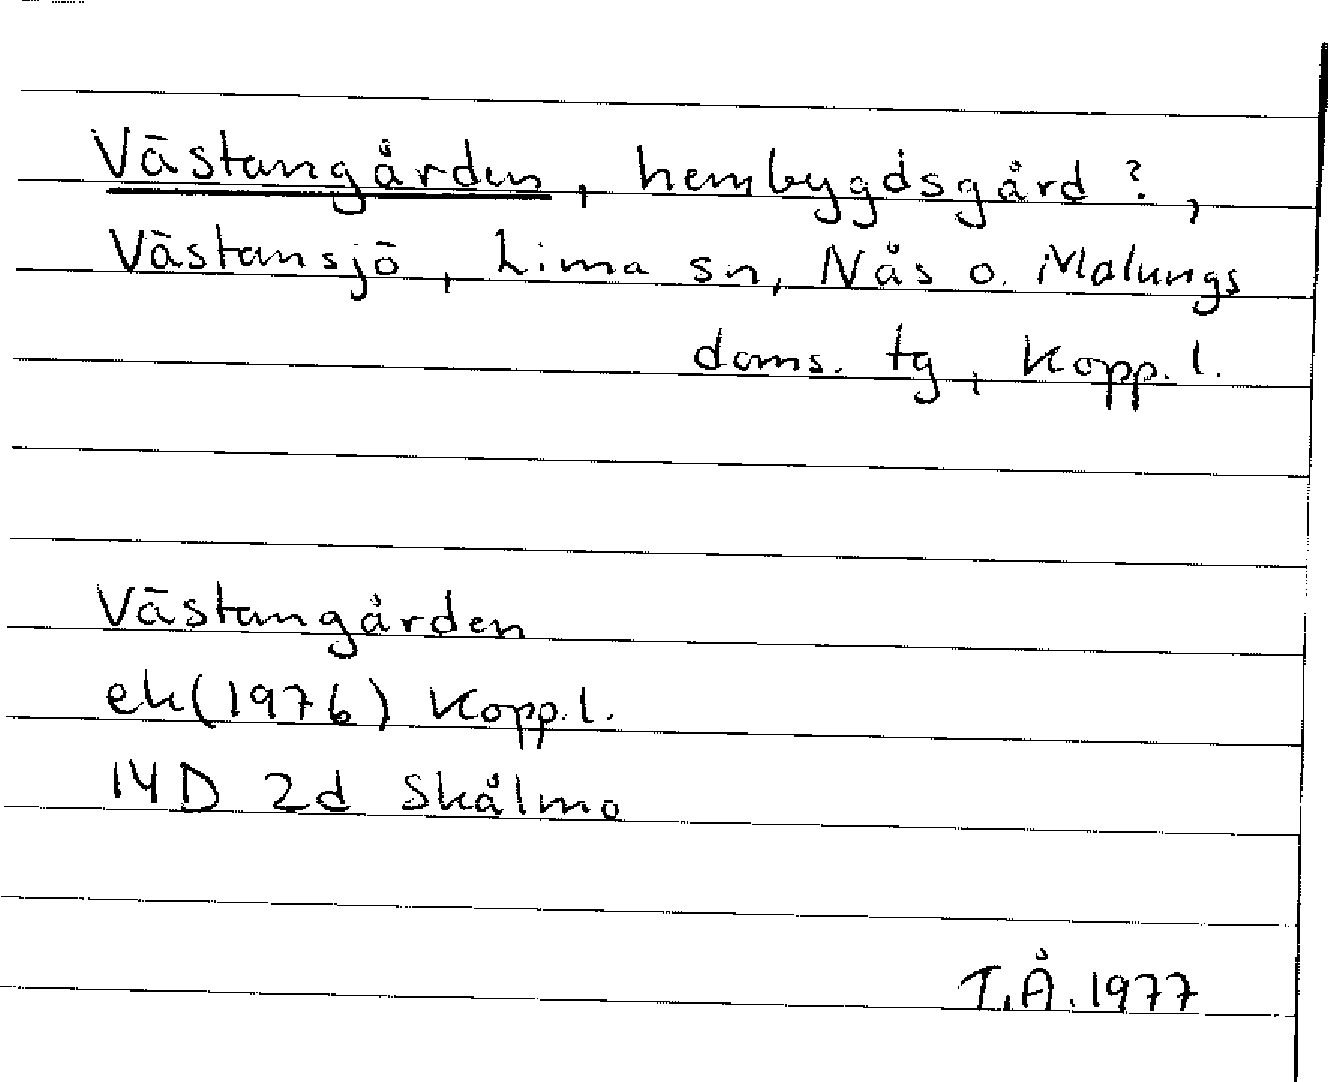 Västangården, hembygdsgård?,
Västansjö, Lima sn, Nås o. Malungs
doms. tg, Kopp. l.
Västangården
ek(1976) Kopp. l.
14D 2d Skålmo
T.Å. 1977